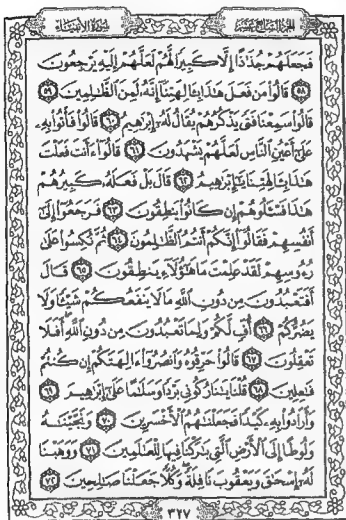 الجزء السابع عشر سورة الأنبياء
فَجَعَلَهُمْ جُذَٰذًا إِلَّا كَبِيرًا لَّهُمْ لَعَلَّهُمْ إِلَيْهِ يَرْجِعُونَ
٥٨ قَالُوا۟ مَن فَعَلَ هَٰذَا بِـَٔالِهَتِنَآ إِنَّهُۥ لَمِنَ ٱلظَّٰلِمِينَ ٥٩
قَالُوا۟ سَمِعْنَا فَتًى يَذْكُرُهُمْ يُقَالُ لَهُۥٓ إِبْرَٰهِيمُ ٦٠ قَالُوا۟ فَأْتُوا۟ بِهِۦ
عَلَىٰٓ أَعْيُنِ ٱلنَّاسِ لَعَلَّهُمْ يَشْهَدُونَ ٦١ قَالُوٓا۟ ءَأَنتَ فَعَلْتَ
هَٰذَا بِـَٔالِهَتِنَا يَٰٓإِبْرَٰهِيمُ ٦٢ قَالَ بَلْ فَعَلَهُۥ كَبِيرُهُمْ
هَٰذَا فَسْـَٔلُوهُمْ إِن كَانُوا۟ يَنطِقُونَ ٦٣ فَرَجَعُوٓا۟ إِلَىٰٓ
أَنفُسِهِمْ فَقَالُوٓا۟ إِنَّكُمْ أَنتُمُ ٱلظَّٰلِمُونَ ٦٤ ثُمَّ نُكِسُوا۟ عَلَىٰ
رُءُوسِهِمْ لَقَدْ عَلِمْتَ مَا هَٰٓؤُلَآءِ يَنطِقُونَ ٦٥ قَالَ
أَفَتَعْبُدُونَ مِن دُونِ ٱللَّهِ مَا لَا يَنفَعُكُمْ شَيْـًٔا وَلَا
يَضُرُّكُمْ ٦٦ أُفٍّ لَّكُمْ وَلِمَا تَعْبُدُونَ مِن دُونِ ٱللَّهِ أَفَلَا
تَعْقِلُونَ ٦٧ قَالُوا۟ حَرِّقُوهُ وَٱنصُرُوٓا۟ ءَالِهَتَكُمْ إِن كُنتُمْ
فَٰعِلِينَ ٦٨ قُلْنَا يَٰنَارُ كُونِى بَرْدًا وَسَلَٰمًا عَلَىٰٓ إِبْرَٰهِيمَ ٦٩
وَأَرَادُوا۟ بِهِۦ كَيْدًا فَجَعَلْنَٰهُمُ ٱلْأَخْسَرِينَ ٧٠ وَنَجَّيْنَٰهُ
وَلُوطًا إِلَى ٱلْأَرْضِ ٱلَّتِى بَٰرَكْنَا فِيهَا لِلْعَٰلَمِينَ ٧١ وَوَهَبْنَا
لَهُۥٓ إِسْحَٰقَ وَيَعْقُوبَ نَافِلَةً وَكُلًّا جَعَلْنَا صَٰلِحِينَ ٧٢
٣٢٧